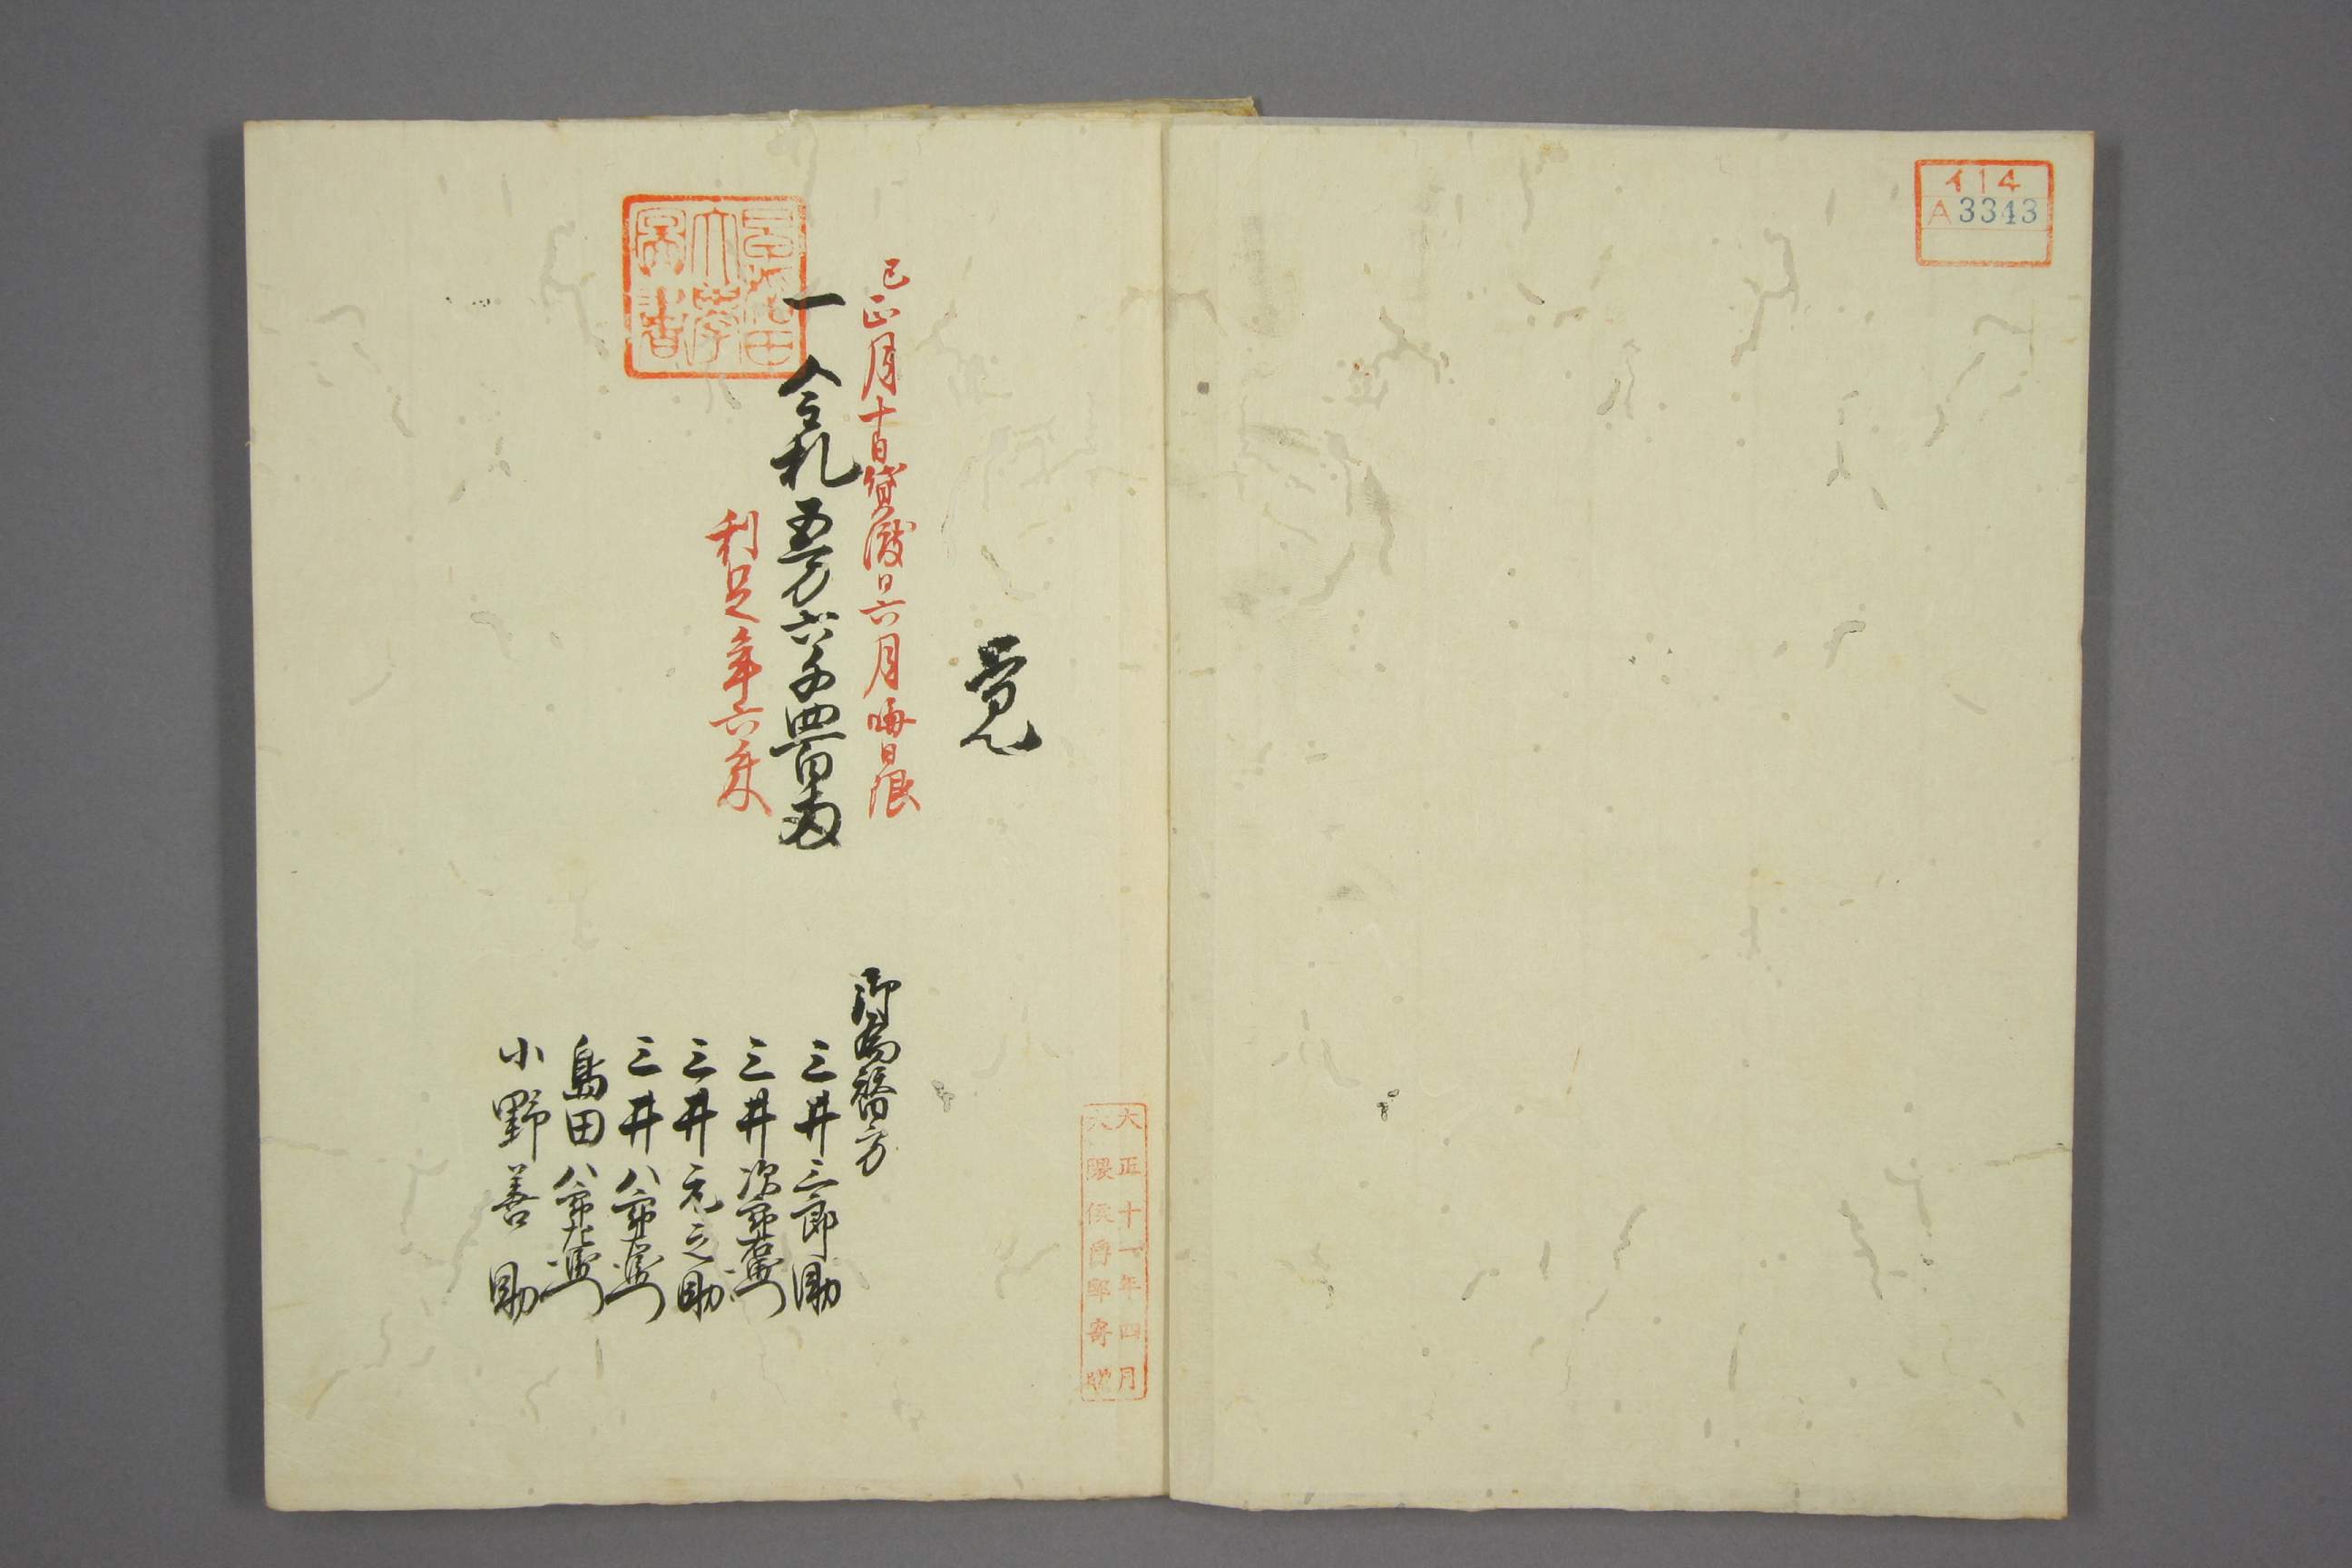 イ14
A3343
大正十一年四月
大隈侯爵邸寄贈
覚
巳正月十日貸渡同六月晦日限
一金札五万六千四百両
利足年六朱
早稲田
大学
図書
御為替方
三井三郎助
三井次郎右衛門
三井元之助
三井八郎右衛門
島田八郎左衛門
小野善助